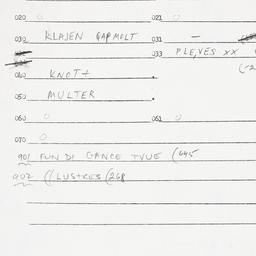 020 0 021 0
030 KLAJEN GAPMOLT 031 —
033 PLE,VES XX
040 KNOT+
050 MULTER
060 0 061 0
070 0
901 FUN DI GANCE TVUE (445
902 ((LUSTRES (268